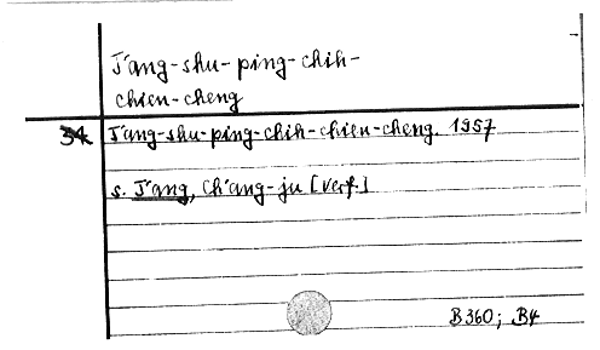 T'ang-shu-ping-chih-
chien-cheng
34 T'ang-shu-ping-chih-chien-cheng. 1957
s. T'ang, Ch'ang-ju [Verf.]
B360; B4